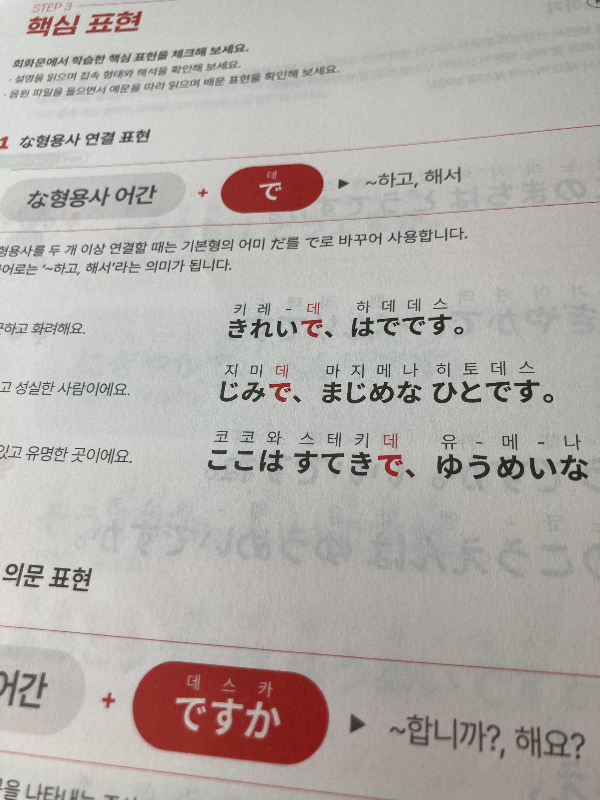 STEP 3
핵심 표현
회화문에서 학습한 핵심 표현을 체크해 보세요.
· 설명을 읽으며 접속 형태와 해석을 확인해 보세요.
· 음원 파일을 들으면서 예문을 따라 읽으며 배운 표현을 확인해 보세요.
1 な형용사 연결 표현
데
な형용사 어간 + で ▶ ~하고, 해서
형용사를 두 개 이상 연결할 때는 기본형의 어미 だ를 で로 바꾸어 사용합니다.
'~하고, 해서'라는 의미가 됩니다.
키 레 - 데 하 데 데 스
화려해요. きれいで、はでです。
지 미 데 마 지 메 나 히 토 데 스
성실한 사람이에요. じみで、まじめな ひとです。
코 코 와 스 테 키 데 유 - 메 - 나
유명한 곳이에요. ここは すてきで、ゆうめいな
의문 표현
데 스 카
어간 + ですか ▶ ~합니까?, 해요?